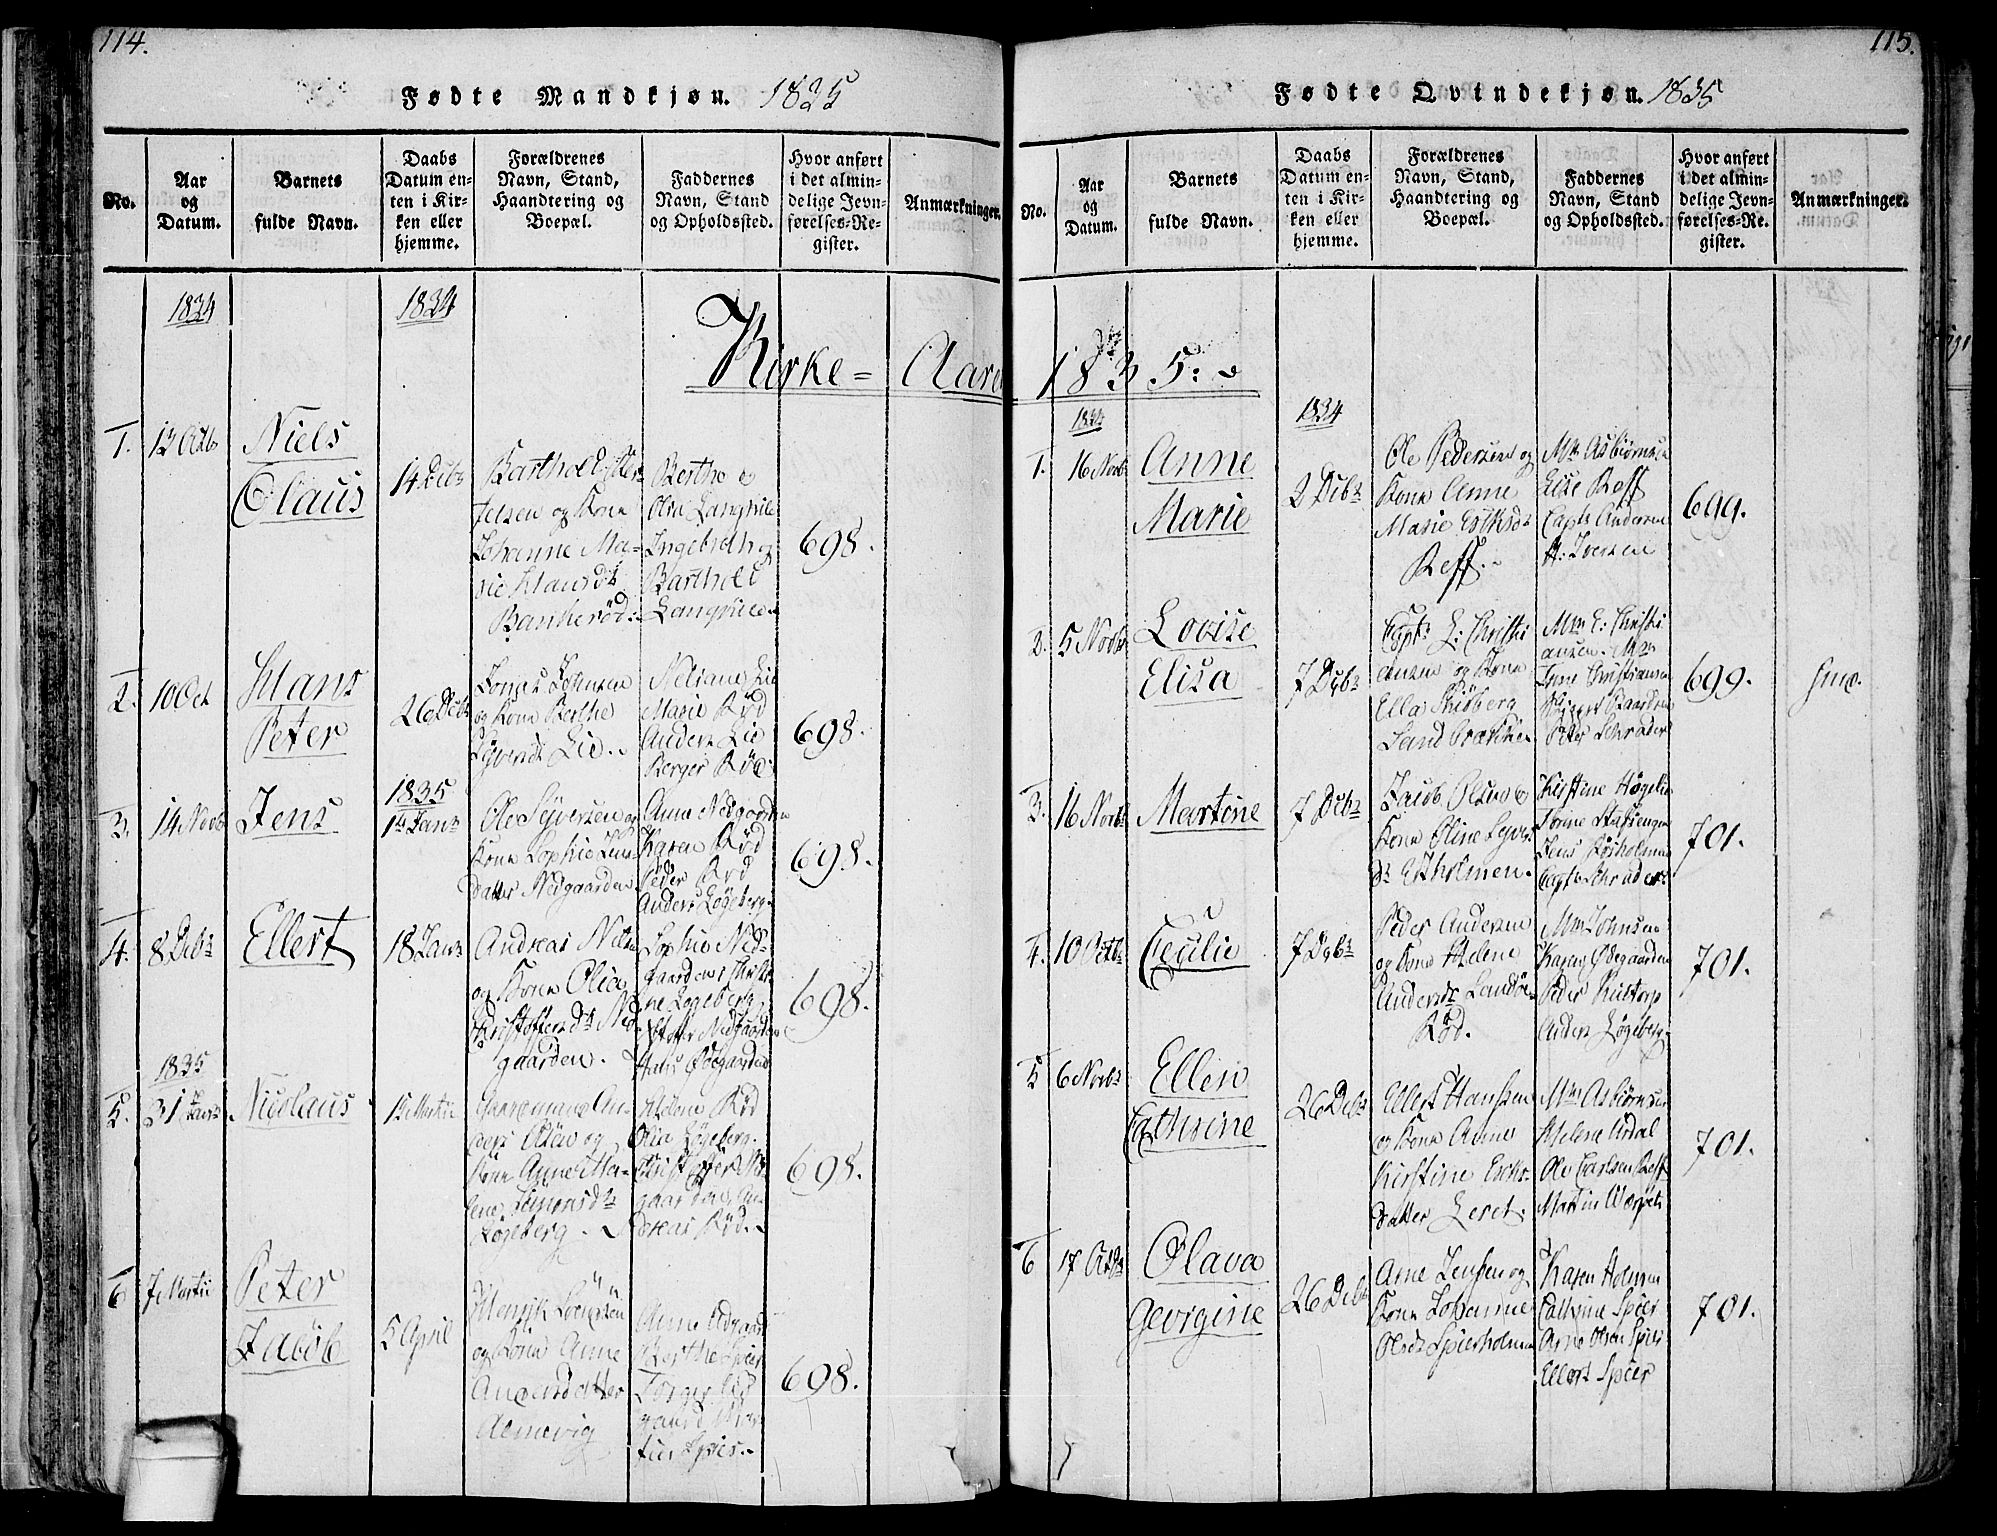 114.
Fødte Mandkjøn. 1835
No.
Aar og Datum.
Barnets fulde Navn.
Daabs Datum enten i Kirken eller hjemme.
Forældrenes Navn, Stand, Haandtering og Boepæl.
Faddernes Navn, Stand og Opholdssted.
Hvor anført i det almindelige Jevnførelses-Register.
Anmærkninger.
1834
1834
Kirke-Aaret 1835:
1.
13 Octb
Niels
Claus
14 Decbr
Barthol Ister
jelsen og Kone
Johanne Ma-
rie Klausdr
Bankerød.
Berthe
Olia Langhile
Ingebreth og
Barthold
Langhile
698.
2.
10 Oct
Hans
Peter
26 Decbr
og Kone Berthe
Syversdr Lie.
Neliane Lie
Marie Rød
Anders Lie
Berger Rød
698.
3.
14 Novb
Jens
1835
1ste Janr
Ole Syversen og
Kone Sophie Jens-
datter Nedgaarden
Anne Nedgaarden
Karen Rød
Peder Rød
Anders Løgeberg
698.
4.
8 Decbr
Ellert
18 Janr
Andreas Niels
og Kone Olia
Christoffersdr Ned-
gaarden.
Sophie Ned-
gaarden Christi-
ne Løgeberg
Nedgaarden
Hans Ødegaarden
698.
1835
5.
31 Janr
Nicolaus
1ste Martii
Gaardmand An-
ders Olsen og
Kone Anne Ma-
lene Simonsdr
Løgeberg.
Helene Rød
Olia Løgeberg.
Christoffer Ned-
gaarden, An-
dreas Rød.
698.
6
7 Martii
Peter
Jakob
5 April
Henrik Sørensen
og Kone Anne
Andersdatter
Almevig
Anne
Berthe Spier
Torger
698.
115.
Fødte Qvindekjøn. 1835
No.
Aar og Datum.
Barnets fulde Navn.
Daabs Datum enten i Kirken eller hjemme.
Forældrenes Navn, Stand, Haandtering og Boepæl.
Faddernes Navn, Stand og Opholdssted.
Hvor anført i det almindelige Jevnførelses-Register.
Anmærkninger.
1834
1834
1.
16 Novbr
Anne
Marie
2 Decbr
Ole Pedersen og
Kone Anne
Marie
Reff.
Mm Asbiørnsen
Elise Reff
Captn Andersen
H: Iversen
699.
2.
5 Novbr
Lovise
Elisa
7 Decbr
Captn E: Christi
ansen og Kone
Ella Skiøberg
Mm E: Christi
ansen. Mm
Christiansen
Peter Schrøder
699.
3.
16 Novbr
Martine
7 Decbr
Jacob Olsen &
Kone Oline Syvers
dr Estholmen.
Kirstine Høgelie
Jens
Captn Schrøder
701.
4.
10 Octbr
Cecilie
7 Decbr
Peder Andersen
og Kone Helene
Andersdr Sandøe
Rød.
Mm Johnsen
Karen Ødegaarden
Peder
Anders Løgeberg
701.
5
6 Novbr
Ellen
Cathrine
26 Decbr
Ellert Hansen
og Kone Anne
Kirstine Erichs-
datter Leret.
Mm Asbiørnsen
Helene Ardal
Ole Carlsen Reff
Martin
701.
6
17 Octbr
Olava
Georgine
26 Decbr
Arne Jensen og
Kone Johanne
Olsdr Spierholmen
Karen Holmen
Cathrine Spier
Arne Olsen Spier
Ellert Spier
701.